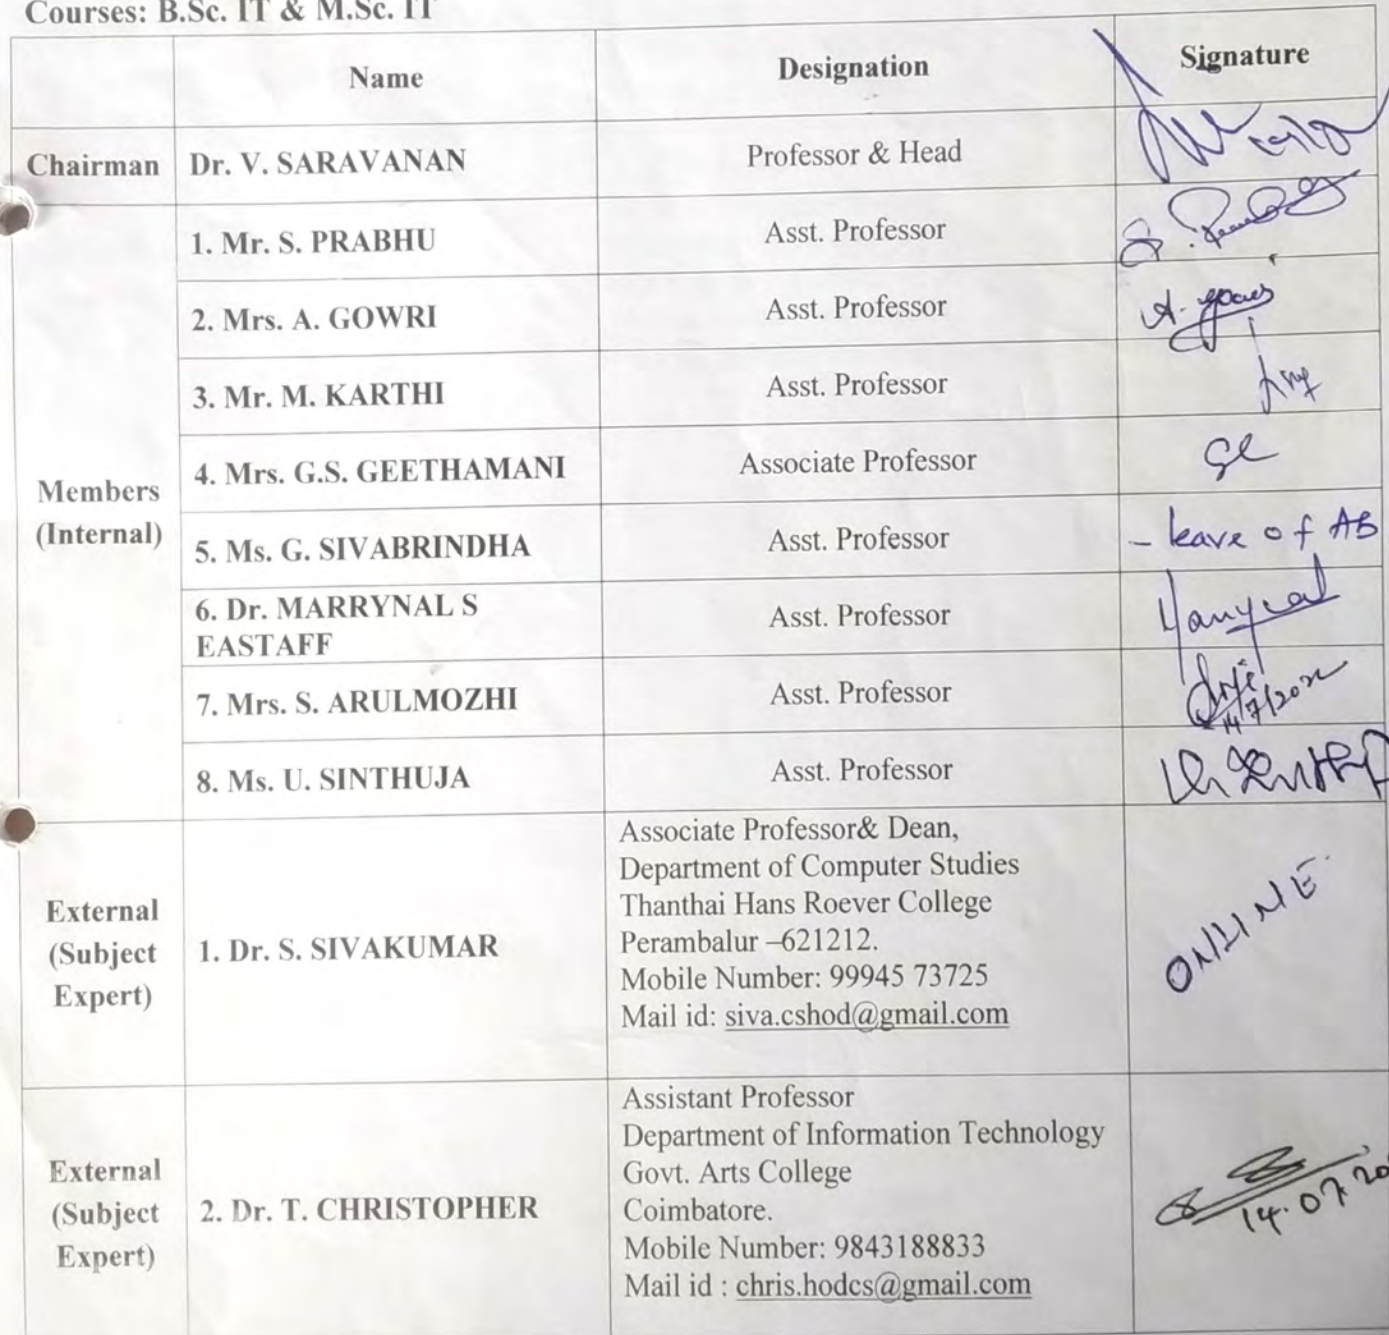 Courses: B.Sc. IT & M.Sc. IT
Name Designation Signature
Chairman Dr. V. SARAVANAN Professor & Head
Members
(Internal)
1. Mr. S. PRABHU Asst. Professor
2. Mrs. A. GOWRI Asst. Professor A. Gowri
3. Mr. M. KARTHI Asst. Professor
4. Mrs. G.S. GEETHAMANI Associate Professor
5. Ms. G. SIVABRINDHA Asst. Professor - leave of AB
6. Dr. MARRYNAL S
EASTAFF
Asst. Professor
7. Mrs. S. ARULMOZHI Asst. Professor
14/7/2022
8. Ms. U. SINTHUJA Asst. Professor
External
(Subject
Expert)
1. Dr. S. SIVAKUMAR
Associate Professor& Dean,
Department of Computer Studies
Thanthai Hans Roever College
Perambalur –621212.
Mobile Number: 99945 73725
Mail id: siva.cshod@gmail.com
ONLINE
External
(Subject
Expert)
2. Dr. T. CHRISTOPHER
Assistant Professor
Department of Information Technology
Govt. Arts College
Coimbatore.
Mobile Number: 9843188833
Mail id : chris.hodcs@gmail.com
14.07.20